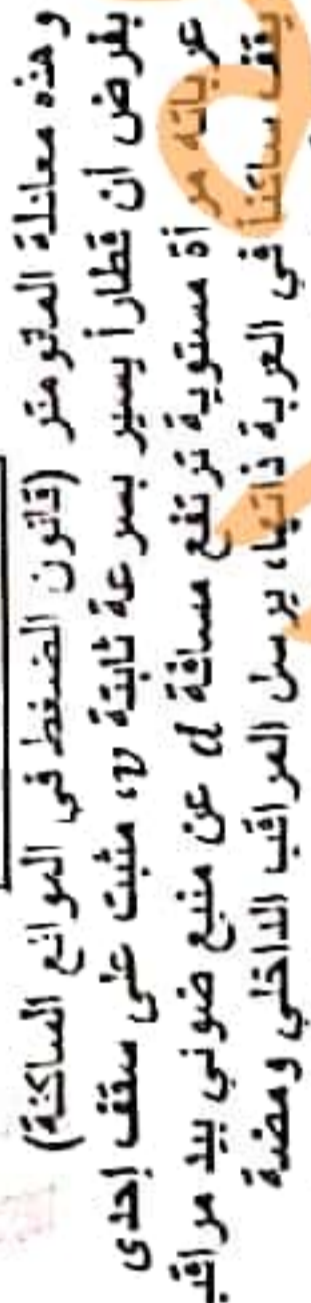 وهذه معادلة المانومتر (قانون الضغط في الموائع الساكنة)
بفرض أن قطاراً يسير بسرعة ثابتة v، مثبت على سقف إحدى
عرباته مرآة مستوية ترتفع مسافة d عن منبع ضوئي بيد مراقب
يقف ساكناً في العربة ذاتها، يرسل المراقب الداخلي ومضة